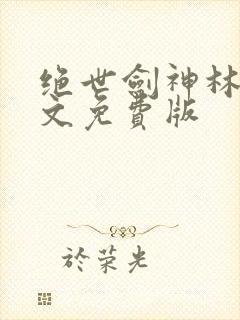 绝世劍神林
文免費版
於荣光